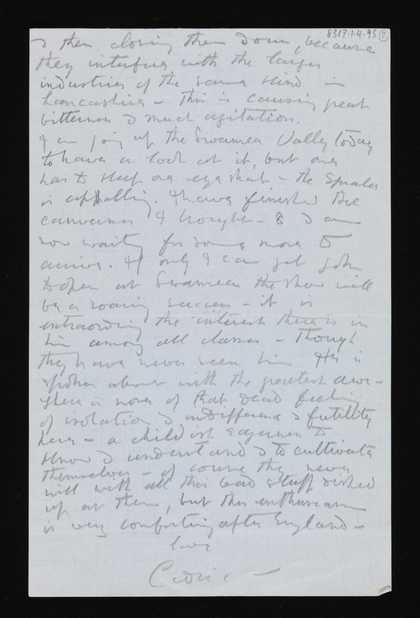 8317.1.4.95
& then closing them down, because
they interfere with the larger
industries of the same kind in
Lancashire – this is causing great
bitterness & much agitation.
I am going up the Swansea Valley today
to have a look at it, but one
has to keep one's eyes shut – the squalor
is appalling. I have finished the
canvases I brought – & I am
now waiting for some more to
arrive. If only I can get John
to open at Swansea the show will
be a roaring success – it is
extraordinary the interest there is in
him among all classes – Though
they have never seen him. He is
spoken about with the greatest awe –
There is none of that dead feeling
of isolation & indifference & futility
here – a childish eagerness to
know & understand & to cultivate
themselves – of course they never
will with all this bad stuff dished
up at them, but this enthusiasm
is very comforting after England –
love
Cedric –